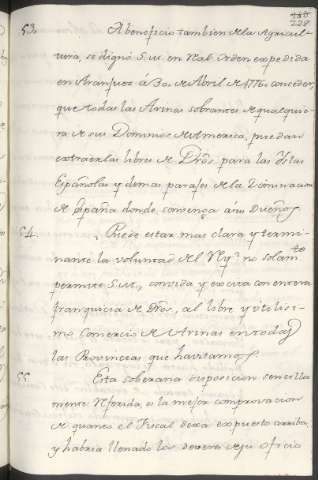 228
53. A beneficio tambien de la Agricul-
tura, se dignó S.M. en Rl. Orden expedida
en Aranjuez á 30 de Abril de 1776 conceder,
que todas las Arinas sobrantes de qualquie-
ra de sus Dominios de America, puedan
extraerlas libres de Dros para las Yslas
Españolas y demas parajes de la Dominacion
de España donde convenga á sus Dueños.
54. ¿Puede estar mas clara y termi-
nante la voluntad del Rey? no solamte
permite S.M., convida y excita con entera
franquicia de Dros, al libre y utilisi-
mo Comercio de Arinas en todas
las Provincias que havitamos
55. Esta soberana disposicion sencilla
mente referida, es la mejor comprovacion
de quanto el Fiscal dexa expuesto arriba,
y habria llenado los deveres de su Oficio